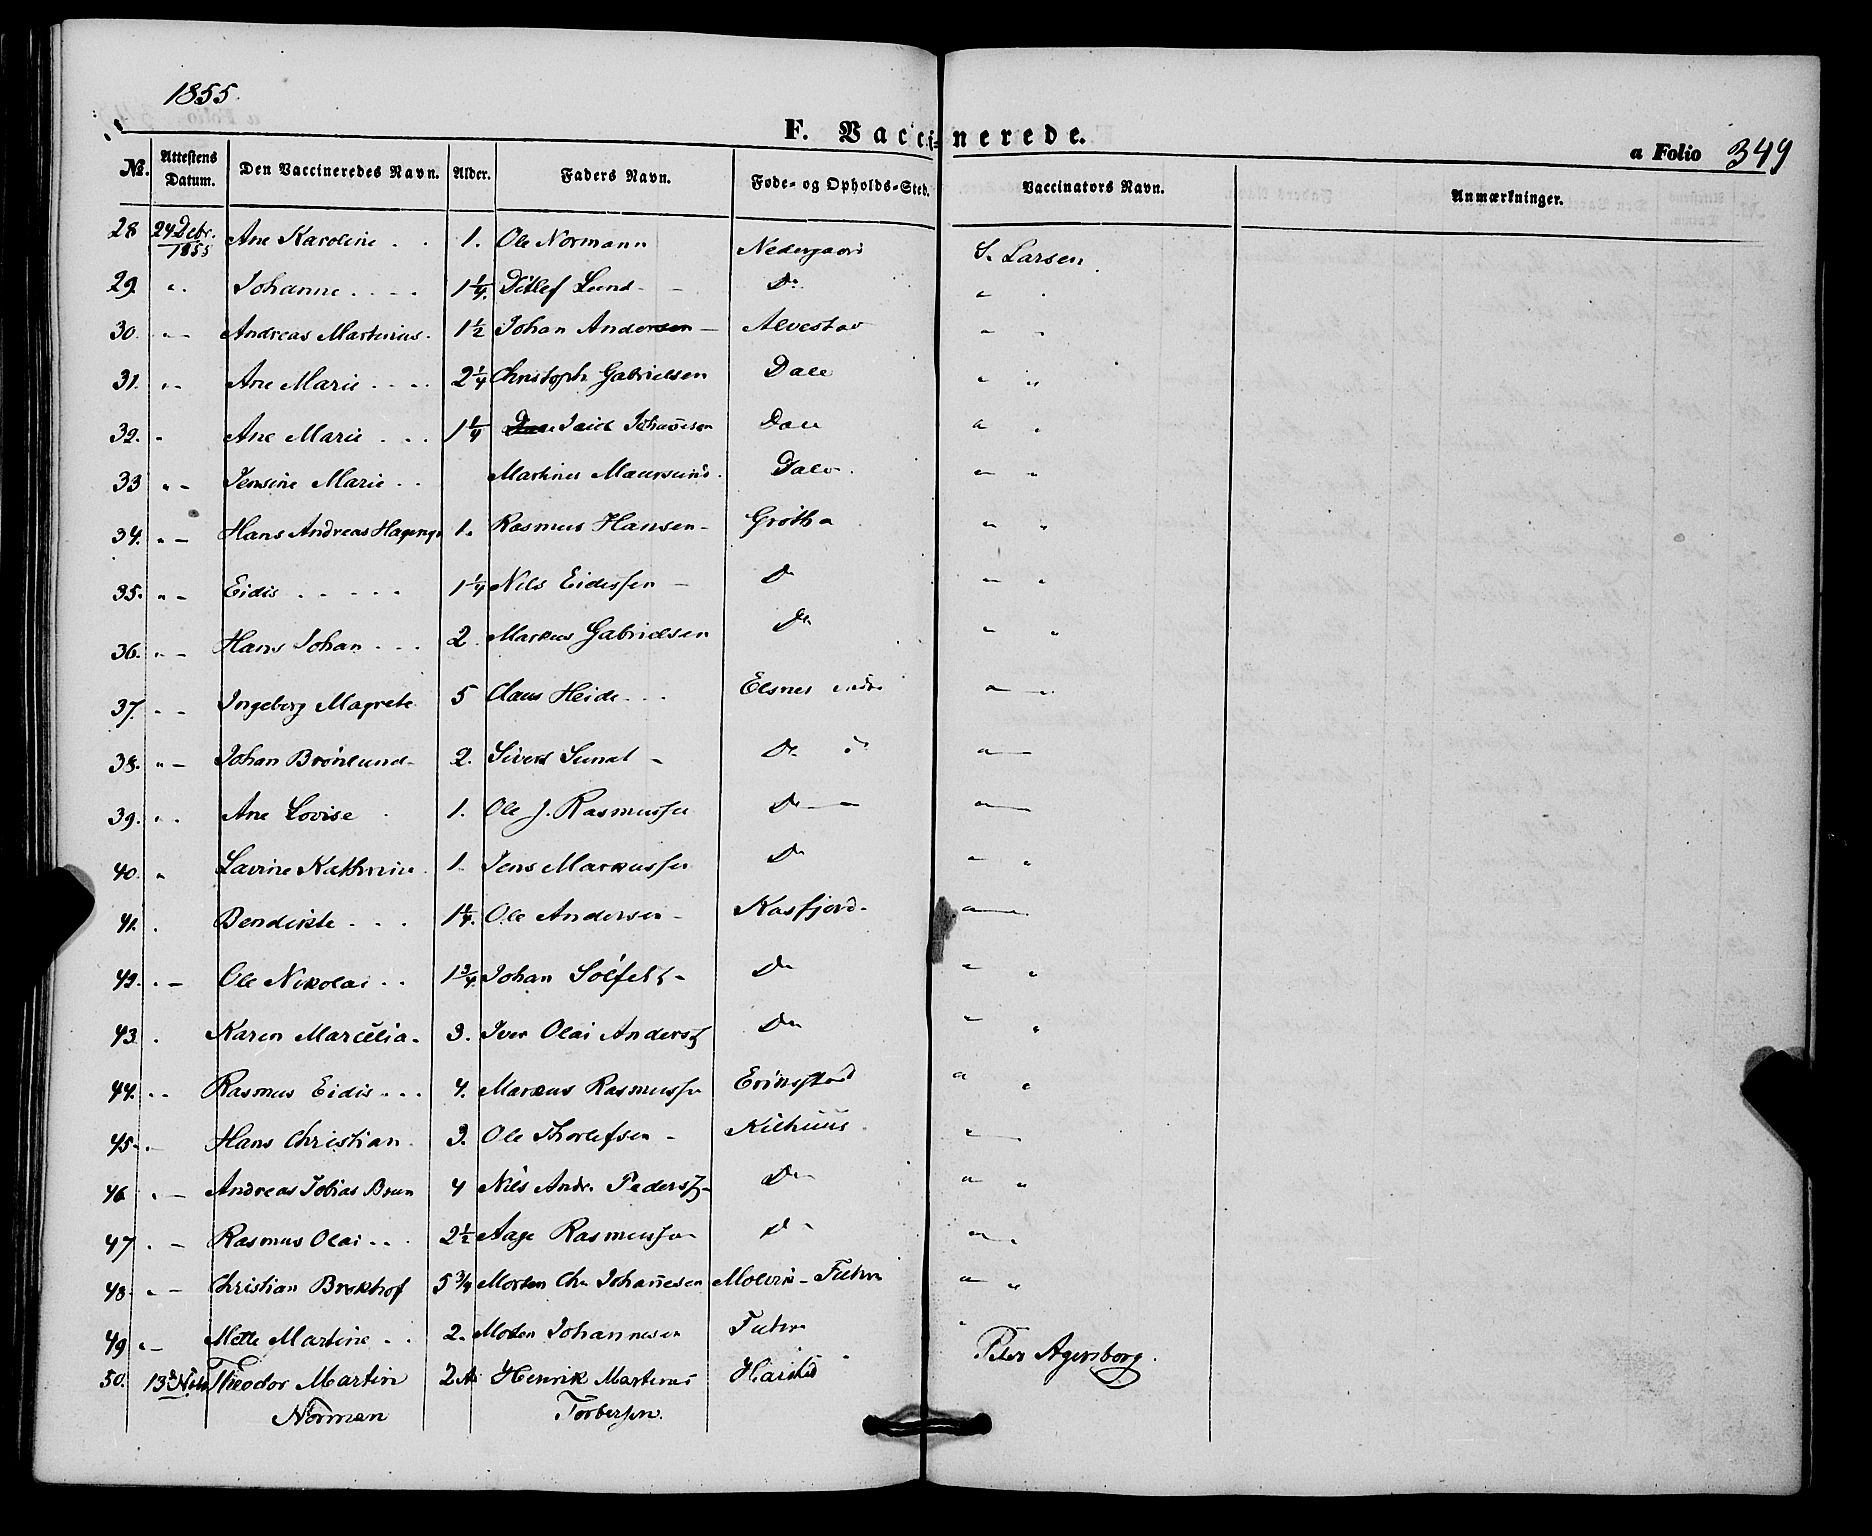 1855.
F. Vaccinerede.
a Folio 349
№. Attestens Datum. Den Vaccineredes Navn. Alder. Faders Navn. Føde- og Opholds-Sted. Vaccinators Navn. Anmærkninger.
28 24 Debr. 1855 Ane Karoline . . 1. Ole Normann Nedergaard S. Larsen
29. " . Johanne . . . . 1 1/4. Ditlef Lund - - Do " .
30. " - Andreas Martinius. 1 1/2 Johan Andersen - Alvestav " "
31. " - Ane Marie . . . . 2 1/4 Christoph Gabrielsen Dale " "
32. " Ane Marie . . . 1 1/4 Johannesen Dale " "
33 " - Jensine Marie . . Martines Maursund. Dale . " "
34. " - Hans Andreas 1. Rasmus Hansen - Grøtha " "
35. " - Eidis . . . . . 1 1/4 Nils Eidessen - Do " "
36. " - Hans Johan . . . 2. Markus Gabrielsen Do " "
37. " - Ingeberg Magrete 5 Claus Heide . . . Elsnes " "
38. " - Johan Brønlund - 2. Sivert Sund - Do " "
39. " . Ane Lovise . 1. Ole J. Rasmussen Do - " -
40. " Lavine Kathrine . 1. Jens Markussen Do " "
41. . Bendikte . . . 1 1/4. Ole Andersen - Kasfjord - " -
42. " - Ole Nikolai . . 1 3/4. Johan Solfeldt - Do " "
43. . Karen Marcelia . 3. Iver Olai Anders. Do " "
44. " . Rasmus Eidis . . . 4. Markus Rasmussen Erikstad " "
45. - Hans Christian . 3. Ole Thorlefsen - Kilhuus . " -
46. " - Andreas Tobias Brun 4 Nils Andr. Peders. - Do " "
47 . - Rasmus Olai . . . 2 1/2 Aage Rasmussen Do " "
48. " - Christian Brekhof 5 3/4 Morten Chr. Johannesen Molvik -  " "
49 " - Mette Martine . . 2. Morten Johannesen "
50. 13 Theodor Martin 2 Henrik Martinus Harstad " Peter Agersborg.
Norman Torbersen.